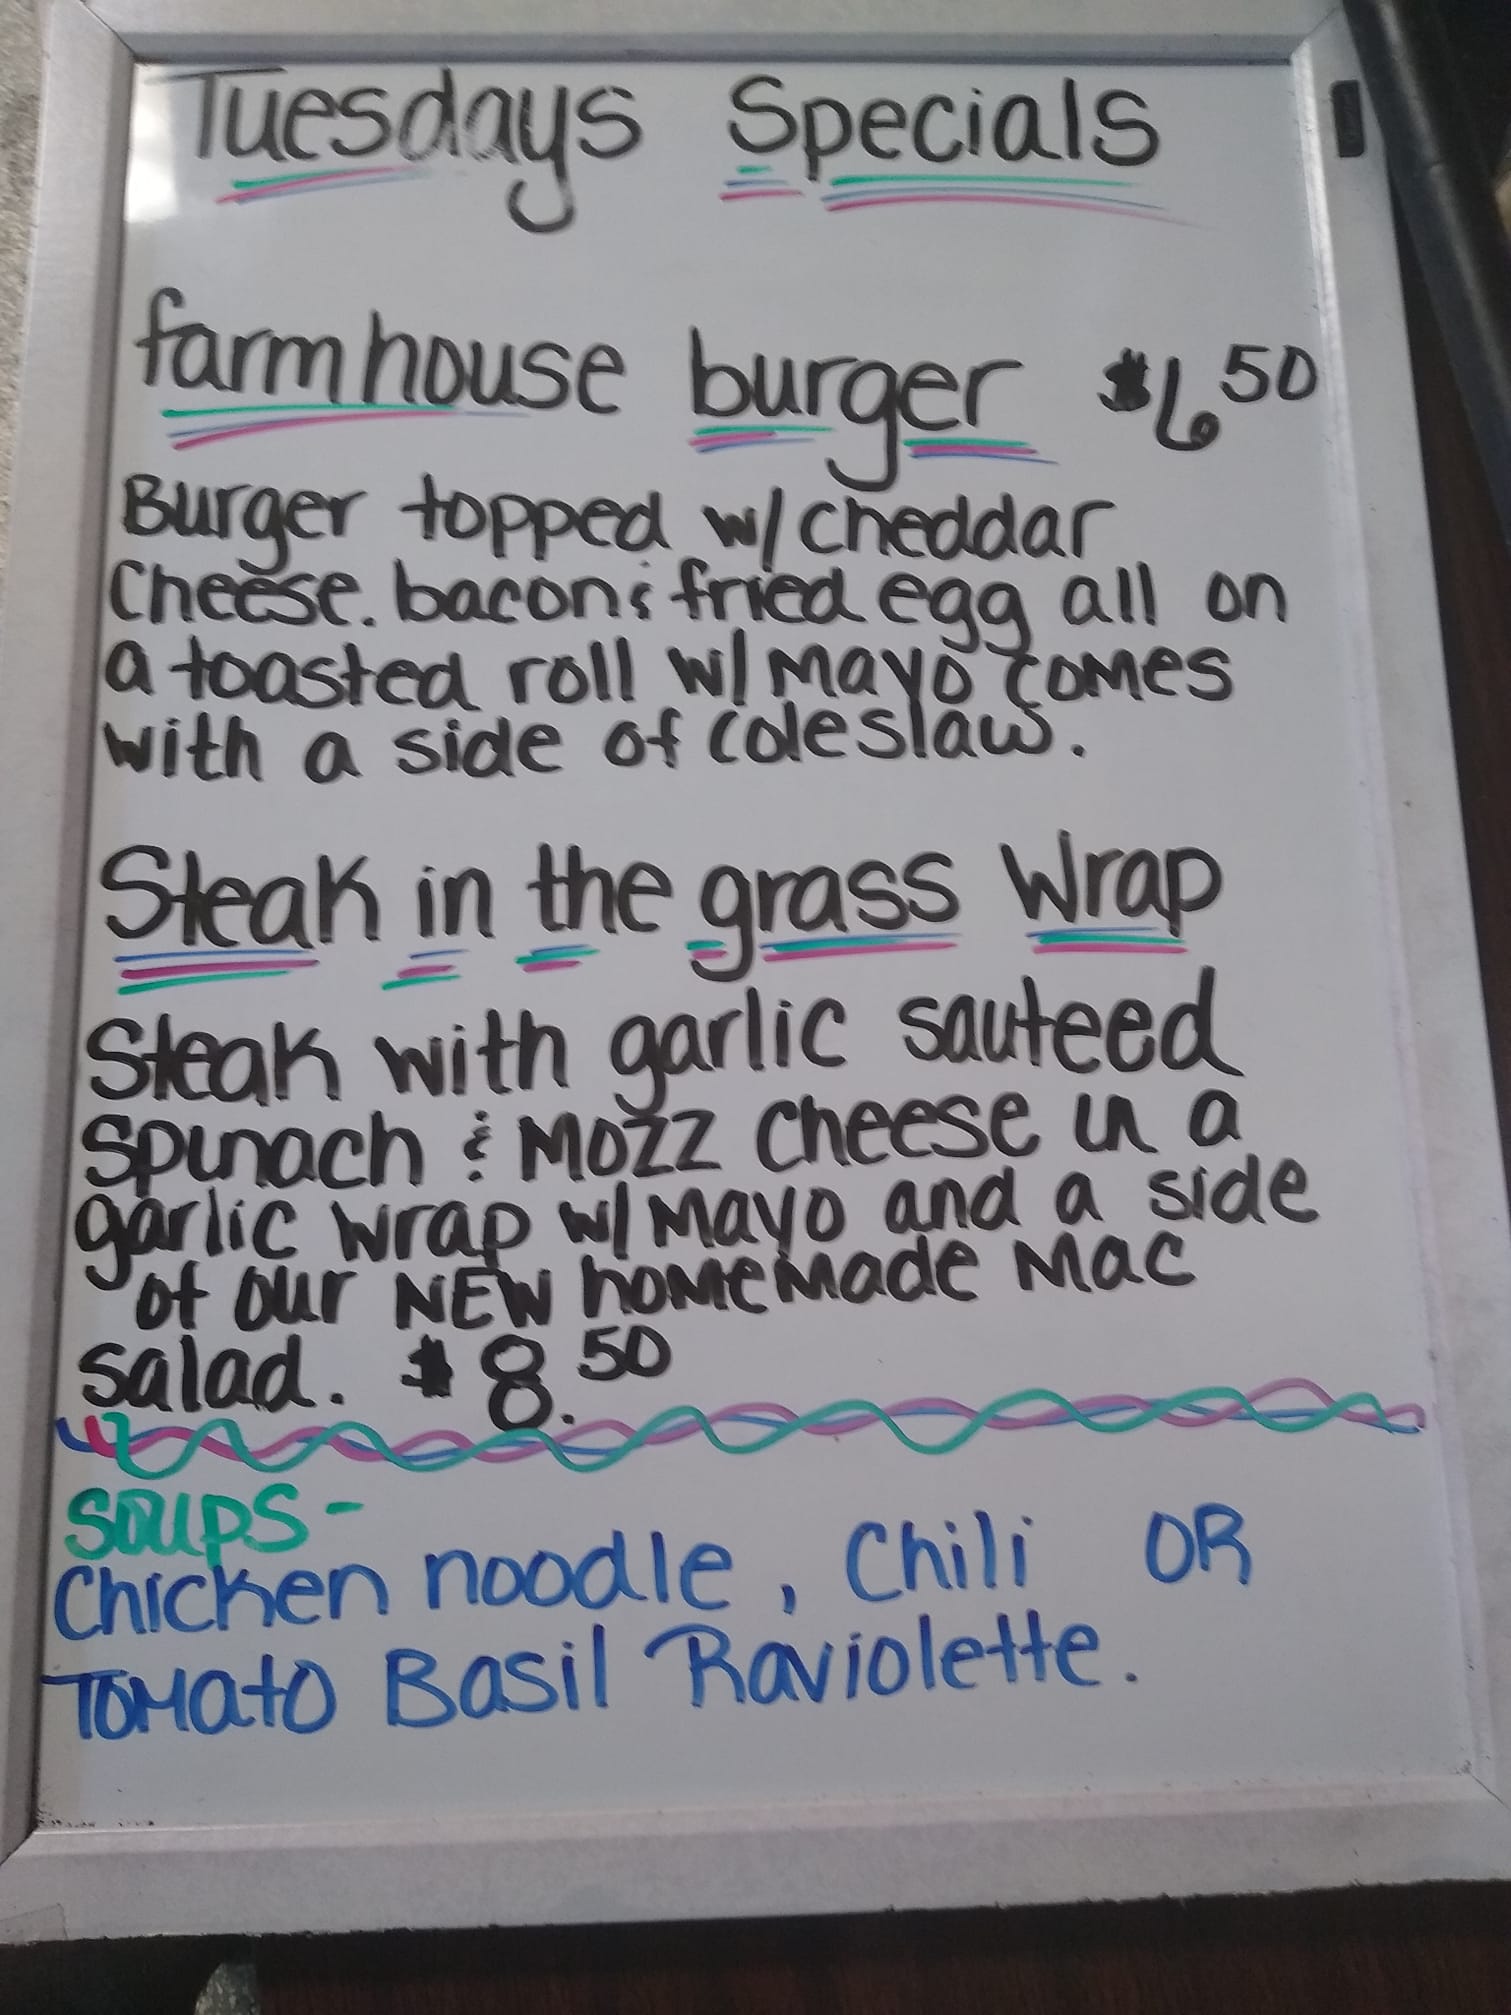 Tuesdays Specials
farmhouse burger $6.50
Burger topped w/ cheddar
cheese. bacon & fried egg all on
a toasted roll w/ mayo comes
with a side of coleslaw.
Steak in the grass Wrap
Steak with garlic sauteed
spinach & Mozz cheese in a
garlic wrap w/ Mayo and a side
of our NEW homemade Mac
salad. $8.50
SOUPS-
Chicken noodle, Chili OR
Tomato Basil Raviolette.